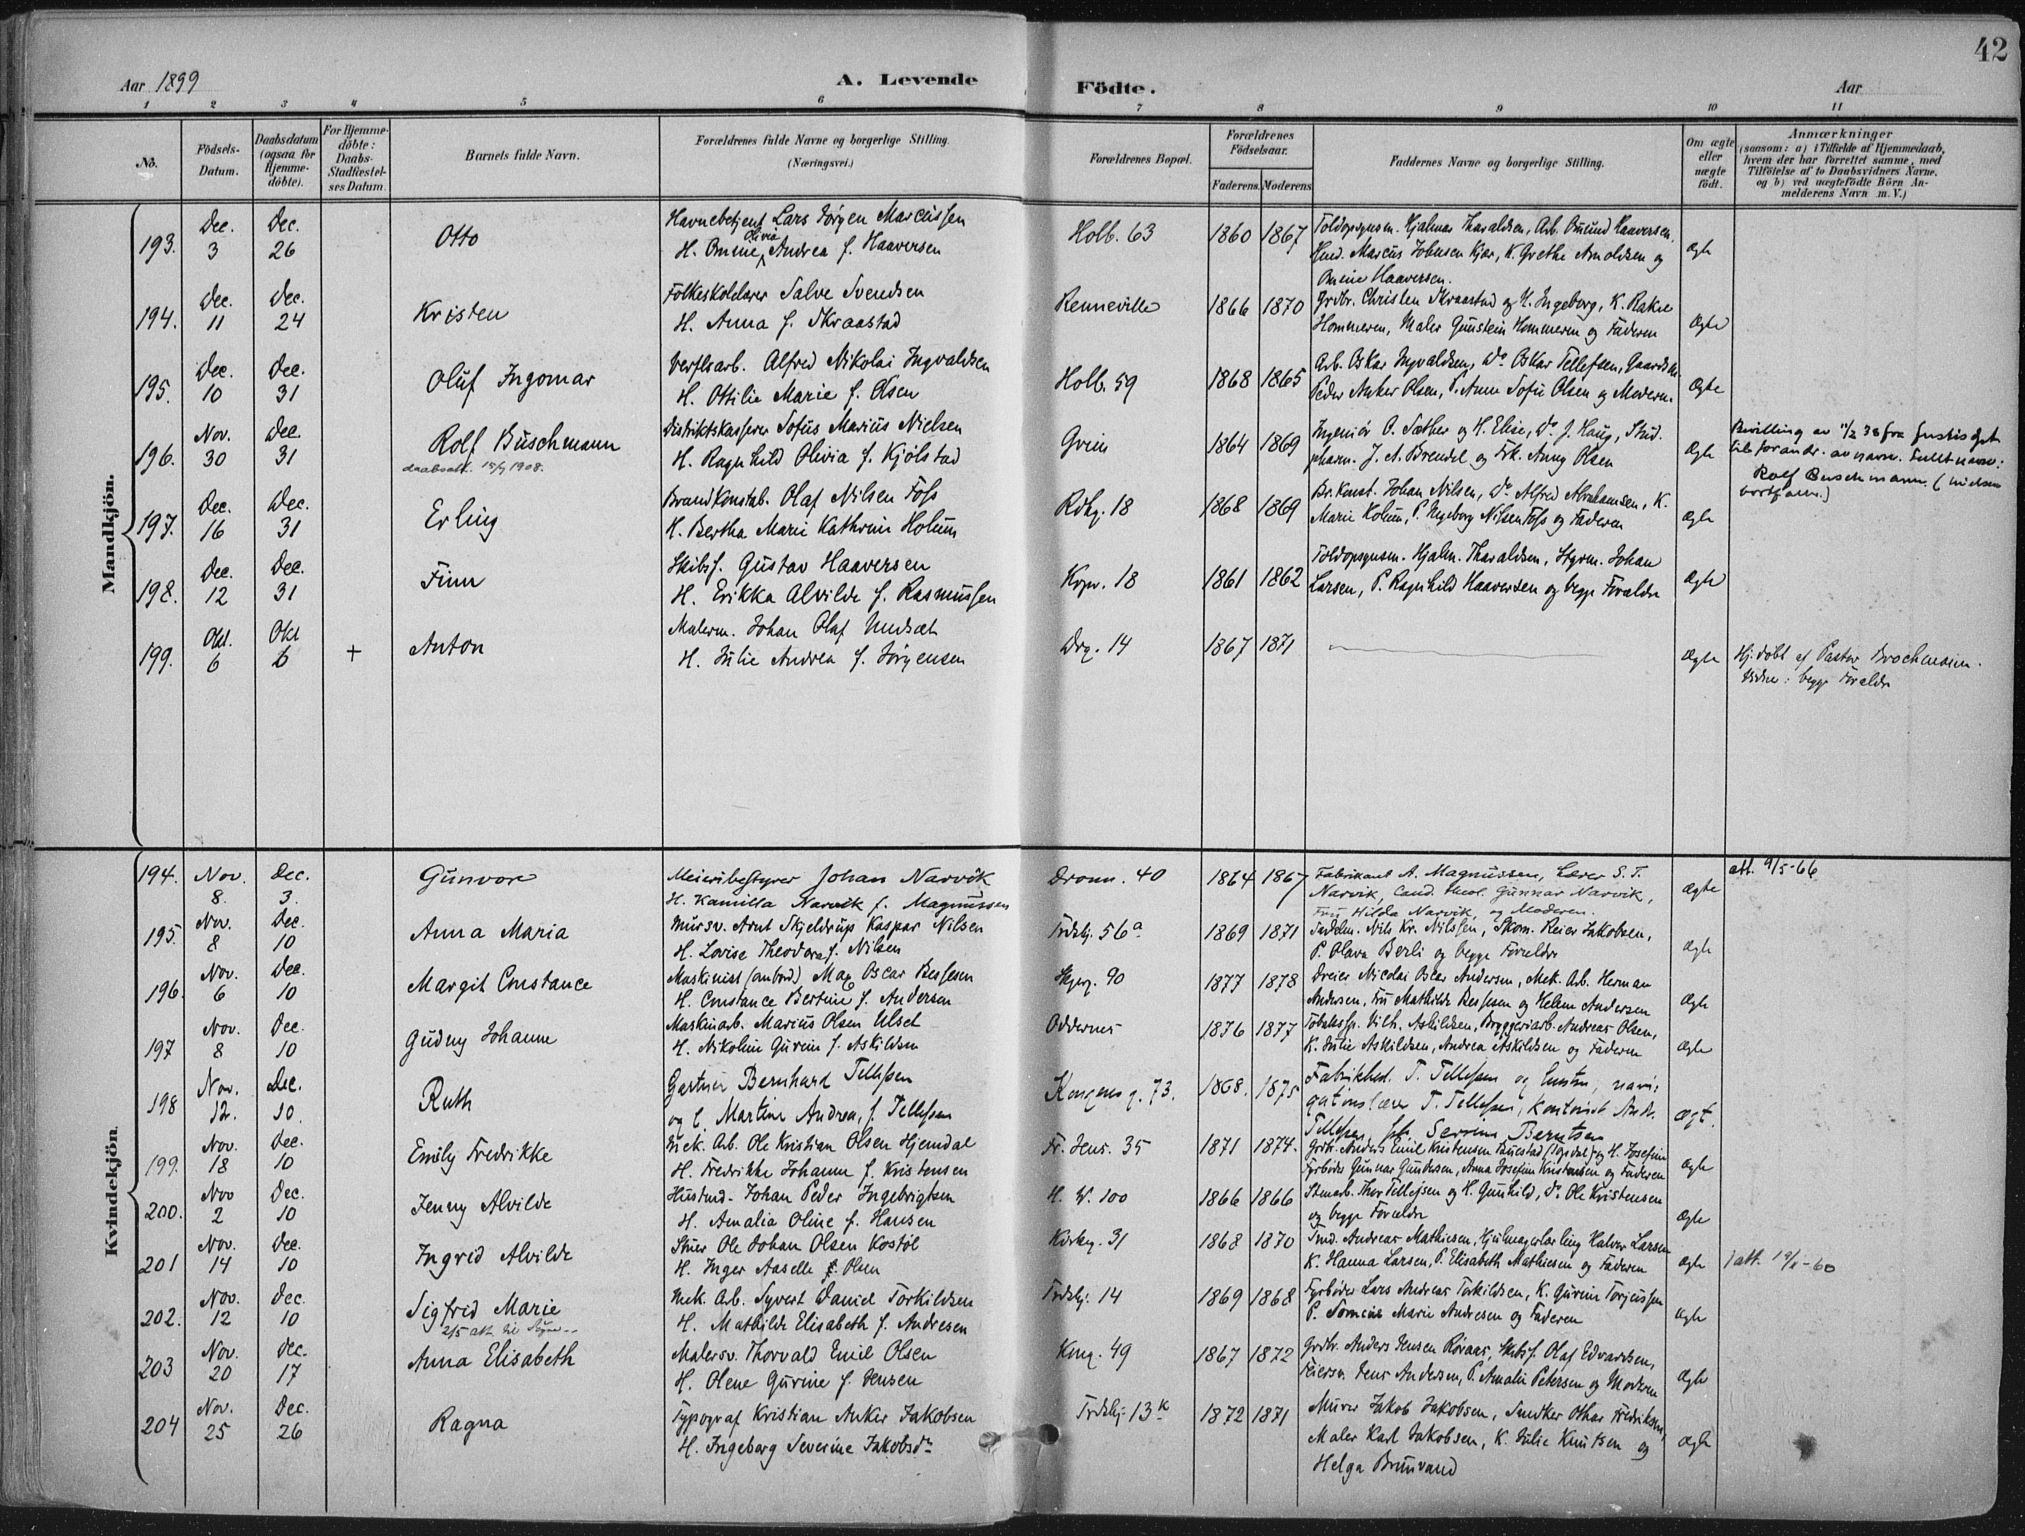 42
Aar 1899
A. Levende Födte.
Aar
1 2 3 4 5 6 7 8 9 10 11
No.
Födsels-Datum.
Daabsdatum (ogsaa for Hjemme-döbte).
For Hjemme-döbte: Daabs-Stadfæstel-ses Datum.
Barnets fulde Navn.
Forældrenes fulde Navne og borgerlige Stilling (Næringsvei.)
Forældrenes Bopæl.
Forældrenes Födselsaar.
Faderens. Moderens.
Faddernes Navne og borgerlige Stilling.
Om ægte eller uægte födt.
Anmærkninger
(saasom: a) i Tilfælde af Hjemmedaab, hvem der har forrettet samme, med Tilföielse af to Daabsvidners Navne, og b) ved uægtefödte Börn An-melderens Navn m. V.)
Mandkjön.
193. Dec. 3 Dec. 26 Otto
Havnebetjent Lars Jörgen Marcussen
H. Omine Olivia Andrea f. Haaversen
Holb. 63 1860 1867
Toldopsynsm. Hjalmar Tharaldsen, Arb. Omund Haaversen,
Marcus Johnsen Kjær, K. Grethe Arnoldsen og
Omine Haaversen.
Ægte
194. Dec. 11 Dec. 24 Kristen
Folkeskolelærer Salve Svendsen
H. Anna f. Skraastad
Renneville 1866 1870
Grdbr. Christen Skraastad og H. Ingeborg, K. Rakel
Hommeren, Maler Gunstein Hommeren og Faderen
Ægte
195. Dec. 10 Dec. 31 Oluf Ingomar
Verftsarb. Alfred Nikolai Ingvaldsen
H. Ottilie Marie f. Olsen
Holb. 59 1868 1865
Arb. Oskar Ingvaldsen, Do Oskar Tellefsen, Gaardbr.
Peder Anker Olsen, P. Anne Sofie Olsen og Moderen.
Ægte
196. Nov. 30 Dec. 31 Rolf Buschmann
daabsatt. 1908.
Distriktskasserer Sofus Marius Nielsen
H. Ragnhild Olivia f. Kjölstad
Grim 1864 1869
Ingeniör O. Sæther og H. Elise, Do J. Haug, Stud.
pharm. J. A. Brendel og Frk. Anny Olsen
Ægte
Bevilling av 11/2 38 fra Justisdept.
til forandr. av navn. Fullt navn:
Rolf Buschmann. (Nielsen
bortfaller.)
197. Dec. 16 Dec. 31 Erling
Brandkonstab. Olaf Nilsen Foss
H. Bertha Marie Kathrine Holum
Rdhg. 18 1868 1869
Br.konst. Johan Nilsen, Do Alfred Abrahamsen, K.
Marie Holum, P. Ingeborg Nilsen Foss og Faderen
Ægte
198. Dec. 12 Dec. 31 Finn
Skibsf. Gustav Haaversen
H. Erikka Alvilde f. Rasmussen
Krpr. 18 1861 1862
Toldopsynsm. Hjalm. Tharaldsen, Styrm. Johan
Larsen, P. Ragnhild Haaversen og begge Forældre
Ægte
199. Okt. 6 Okt 6 + Anton
Malerm. Johan Olaf
H. Julie Andrea f. Jörgensen
Drg. 14 1867 1871
Ægte
Hj.döbt af Pastor Brochmann.
Vidner: begge Forældre
Kvindekjön
194. Nov. 8. Dec. 3. Gunvor
Meieribestyrer Johan Narvik
H. Kamilla Narvik f. Magnussen
Dronn. 40 1864 1867
Fabrikant A. Magnussen, Lærer S. T.
Narvik, Cand. theol. Gunnar Narvik,
Fru Hilda Narvik, og Moderen.
Ægte
att. 9/5-66
195. Nov. 8 Dec. 10 Anna Maria
Mursv. Arnt Skjeldrup Kaspar Nilsen
H. Lovise Theodora f. Nilsen
Trdskj. 56a 1869 1871
Nils Kr. Nilssen, Skom. Reier Jakobsen,
P. Olava Berli og begge Forældre
Ægte
196. Nov. 6 Dec. 10 Margit Constance
Maskinist (ombord) Max Oscar Bessesen
H. Constance Bertine f. Andersen
Skprg. 90 1877 1878
Dreier Nicolai Oscar Andersen, Mek. Arb. Herman
Andersen, Fru Mathilde Bessesen og Helene Andersen
Ægte
197 Nov. 8 Dec. 10 Gudny Johanne
Maskinarb. Marius Olsen Ulset
H. Nikoline Gurine f. Askildsen
Oddernes 1876 1877
Tobaksp. Vilh. Askildsen, Bryggeriarb. Andreas Olsen,
K. Julie Askildsen, Andrea Askildsen og Faderen
Ægte
198 Nov. 12. Dec. 10. Ruth
Gartner Bernhard Tellefsen
og Martine Andrea, f. Tellefsen
Kongens g. 73. 1868. 1875
Fabrikbest. T. Tellefsen og hustru, navi-
gationslærer T. Tellefsen, kontorist Andr.
Tellefsen, Serine Berntsen
Ægt.
199. Nov. 18 Dec. 10 Emily Fredrikke
Mek. Arb. Ole Kristian Olsen Hjemdal
H. Fredrikke Johanne f. Kristensen
Fr. Jens. 35 1871 1874.
Grbr. Anders Emil Kristensen og H. Josefine
Fyrböder Gunnar Gundersen, Anna Josefine Kristensen og Faderen
Ægte
200. Nov 2 Dec. 10 Jenny Alvilde
Hustmd. Johan Peder Ingebrigtsen
H. Amalia Oline f. Hansen
H. W. 100 1866 1866
Stenarb. Thor Tellefsen og H. Gunhild, Do Ole Kristensen
og begge Forældre
Ægte
201 Nov. 14 Dec. 10 Ingrid Alvilde
Stuer Ole Johan Olsen Kostöl
H. Inger Aaselle f. Olsen
Kirkeg. 31 1868 1870
Andreas Mathiesen, Hjulmagerlærling Halvor Larsen
K. Hanna Larsen, P. Elisabeth Mathiesen og Faderen
Ægte
202. Nov. 12 Dec. 10 Sigfrid Marie
Mek. Arb. Syvert Daniel Torkildsen
H. Mathilde Elisabeth f. Andresen
Trdskj. 14 1869 1868
Fyrböder Lars Andreas Torkildsen, K. Gurine Torjussen
P. Tomine Marie Andresen og Faderen
Ægte
203 Nov. 20 Dec. 17 Anna Elisabeth
Malersv. Thorvald Emil Olsen
H. Olene Gurine f. Jensen
Kong. 49 1867 1872
Grdbr. Anders Jensen Röraas, Skibsf. Olaf Edvardsen,
Feiersv. Jens Andersen, P. Amalie Petersen og Moderen
Ægte
204 Nov. 25 Dec. 26 Ragna
Typograf Kristian Anker Jakobsen
H. Ingeborg Severine Jakobsdr
Trdskj. 13k 1872 1871
Murer Jakob Jakobsen, Snedker Othar Fredriksen,
Maler Karl Jakobsen, K. Julie Knutsen og
Helga Brunvand
Ægte